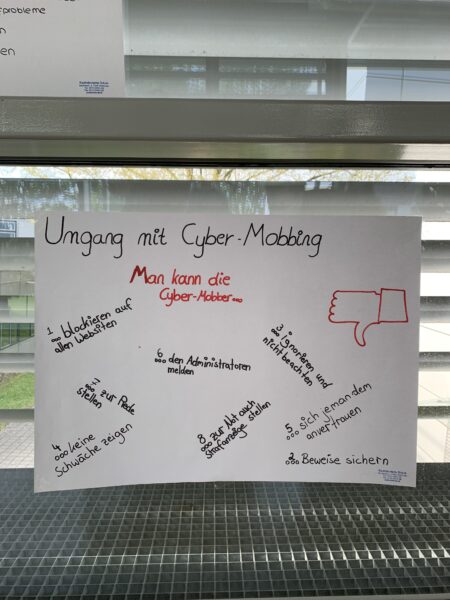 probleme
Umgang mit Cyber-Mobbing
Man kann die
Cyber-Mobber...
1
... blockieren auf
allen Websiten
6
... den Administratoren
melden
3
... ignorieren und
nicht beachten
... zur Rede
stellen
4
... keine
Schwäche zeigen
8
... zur Not auch
Strafanzeige stellen
5
... sich jemandem
anvertrauen
2
... Beweise sichern